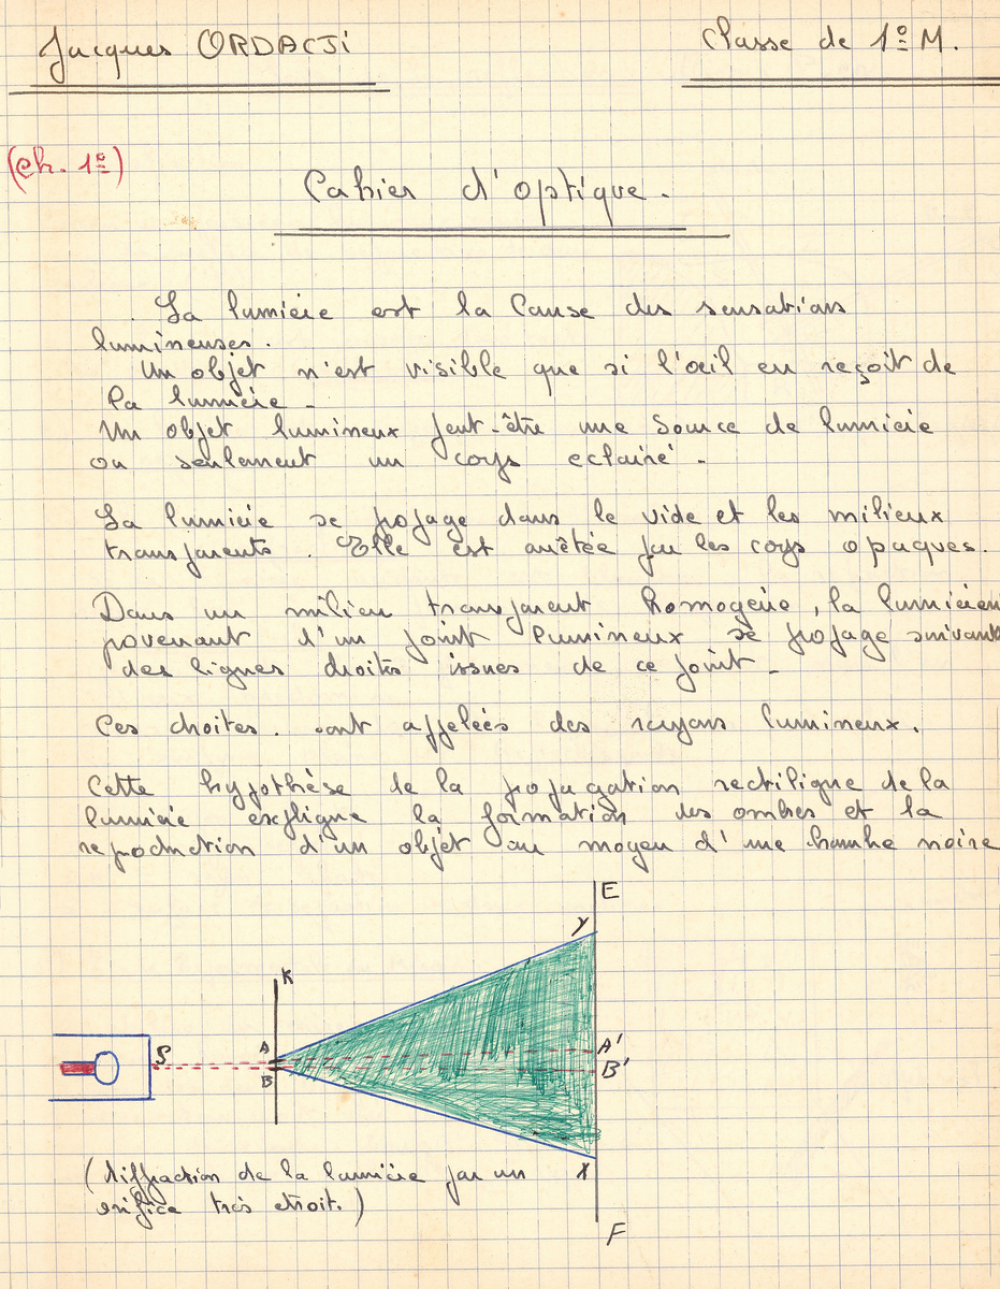 Jacques ORDACJi
Classe de 1º M.
(ch. 1º)
Cahier d'optique.
La lumière est la Cause des sensations
lumineuses.
Un objet n'est visible que si l'œil en reçoit de
la lumière -
Un objet lumineux peut-être une Source de lumière
ou seulement un corps eclairé -
La lumière se propage dans le vide et les milieux
transparents. Elle est arrêtée par les corps opaques.
Dans un milieu transparent homogène, la lumière
provenant d'un point lumineux se propage suivant
des lignes droites issues de ce point -
Ces droites. sont appelées des rayons lumineux.
Cette hypothèse de la propagation rectiligne de la
lumière explique la formation des ombres et la
reproduction d'un objet au moyen d'une chambre noire
E
Y
K
A
A'
S
B'
B
X
F
(diffraction de la lumière par un
orifice très etroit.)